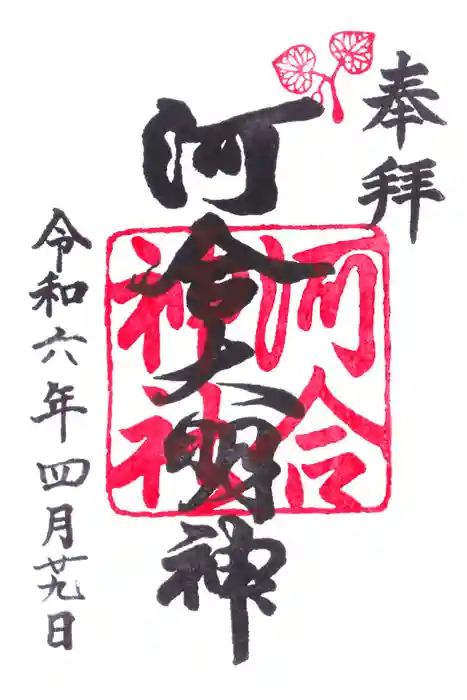 奉拝
河合神社
河合大明神
令和六年四月廿九日